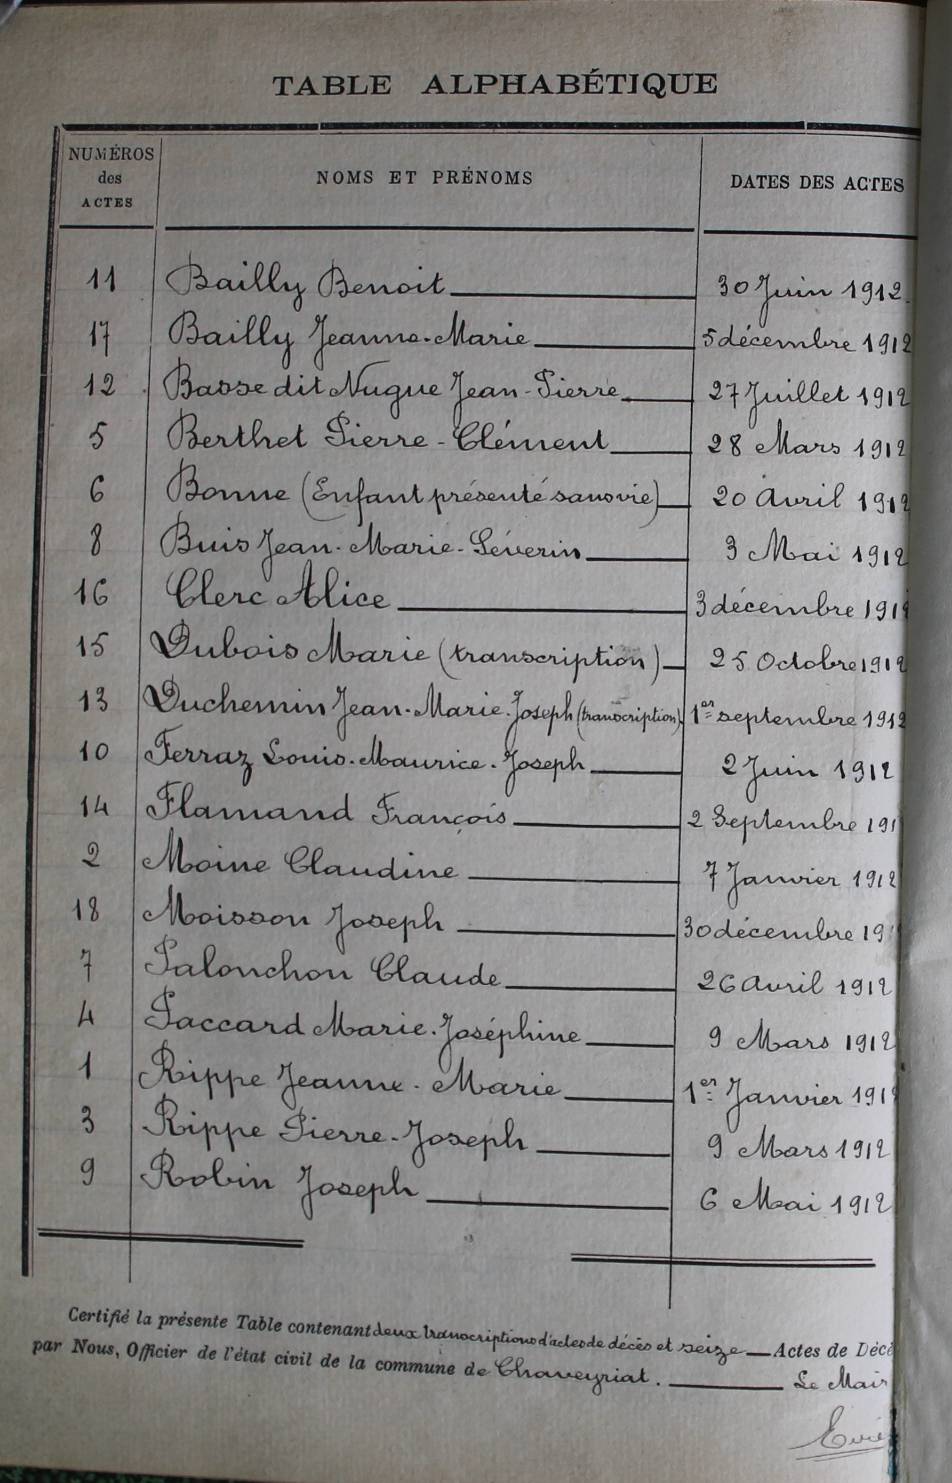 TABLE ALPHABÉTIQUE
NUMÉROS des ACTES NOMS ET PRÉNOMS DATES DES ACTES
11 Bailly Benoit 30 Juin 1912
17 Bailly Jeanne-Marie 5 décembre 1912
12 Basse dit Nugue Jean-Pierre 27 Juillet 1912
5 Berthet Pierre-Clément 28 Mars 1912
6 Bonne (Enfant présenté sans vie) 20 Avril 1912
8 Buis Jean-Marie-Séverin 3 Mai 1912
16 Clerc Alice 3 décembre 191
15 Dubois Marie (transcription) 25 Octobre 1912
13 Duchemin Jean-Marie-Joseph (transcription) 1er septembre 1912
10 Ferraz Louis-Maurice-Joseph 2 Juin 1912
14 Flamand François 2 Septembre 191
2 Moine Claudine 7 Janvier 1912
18 Moisson Joseph 30 décembre 19
7 Palonchon Claude 26 Avril 1912
4 Paccard Marie-Joséphine 9 Mars 1912
1 Rippe Jeanne-Marie 1er Janvier 1912
3 Rippe Pierre-Joseph 9 Mars 1912
9 Robin Joseph 6 Mai 1912
Certifié la présente Table contenant deux transcriptions d'actes de décès et seize Actes de Décè
par Nous, Officier de l'état civil de la commune de Chaveyriat. Le Mair